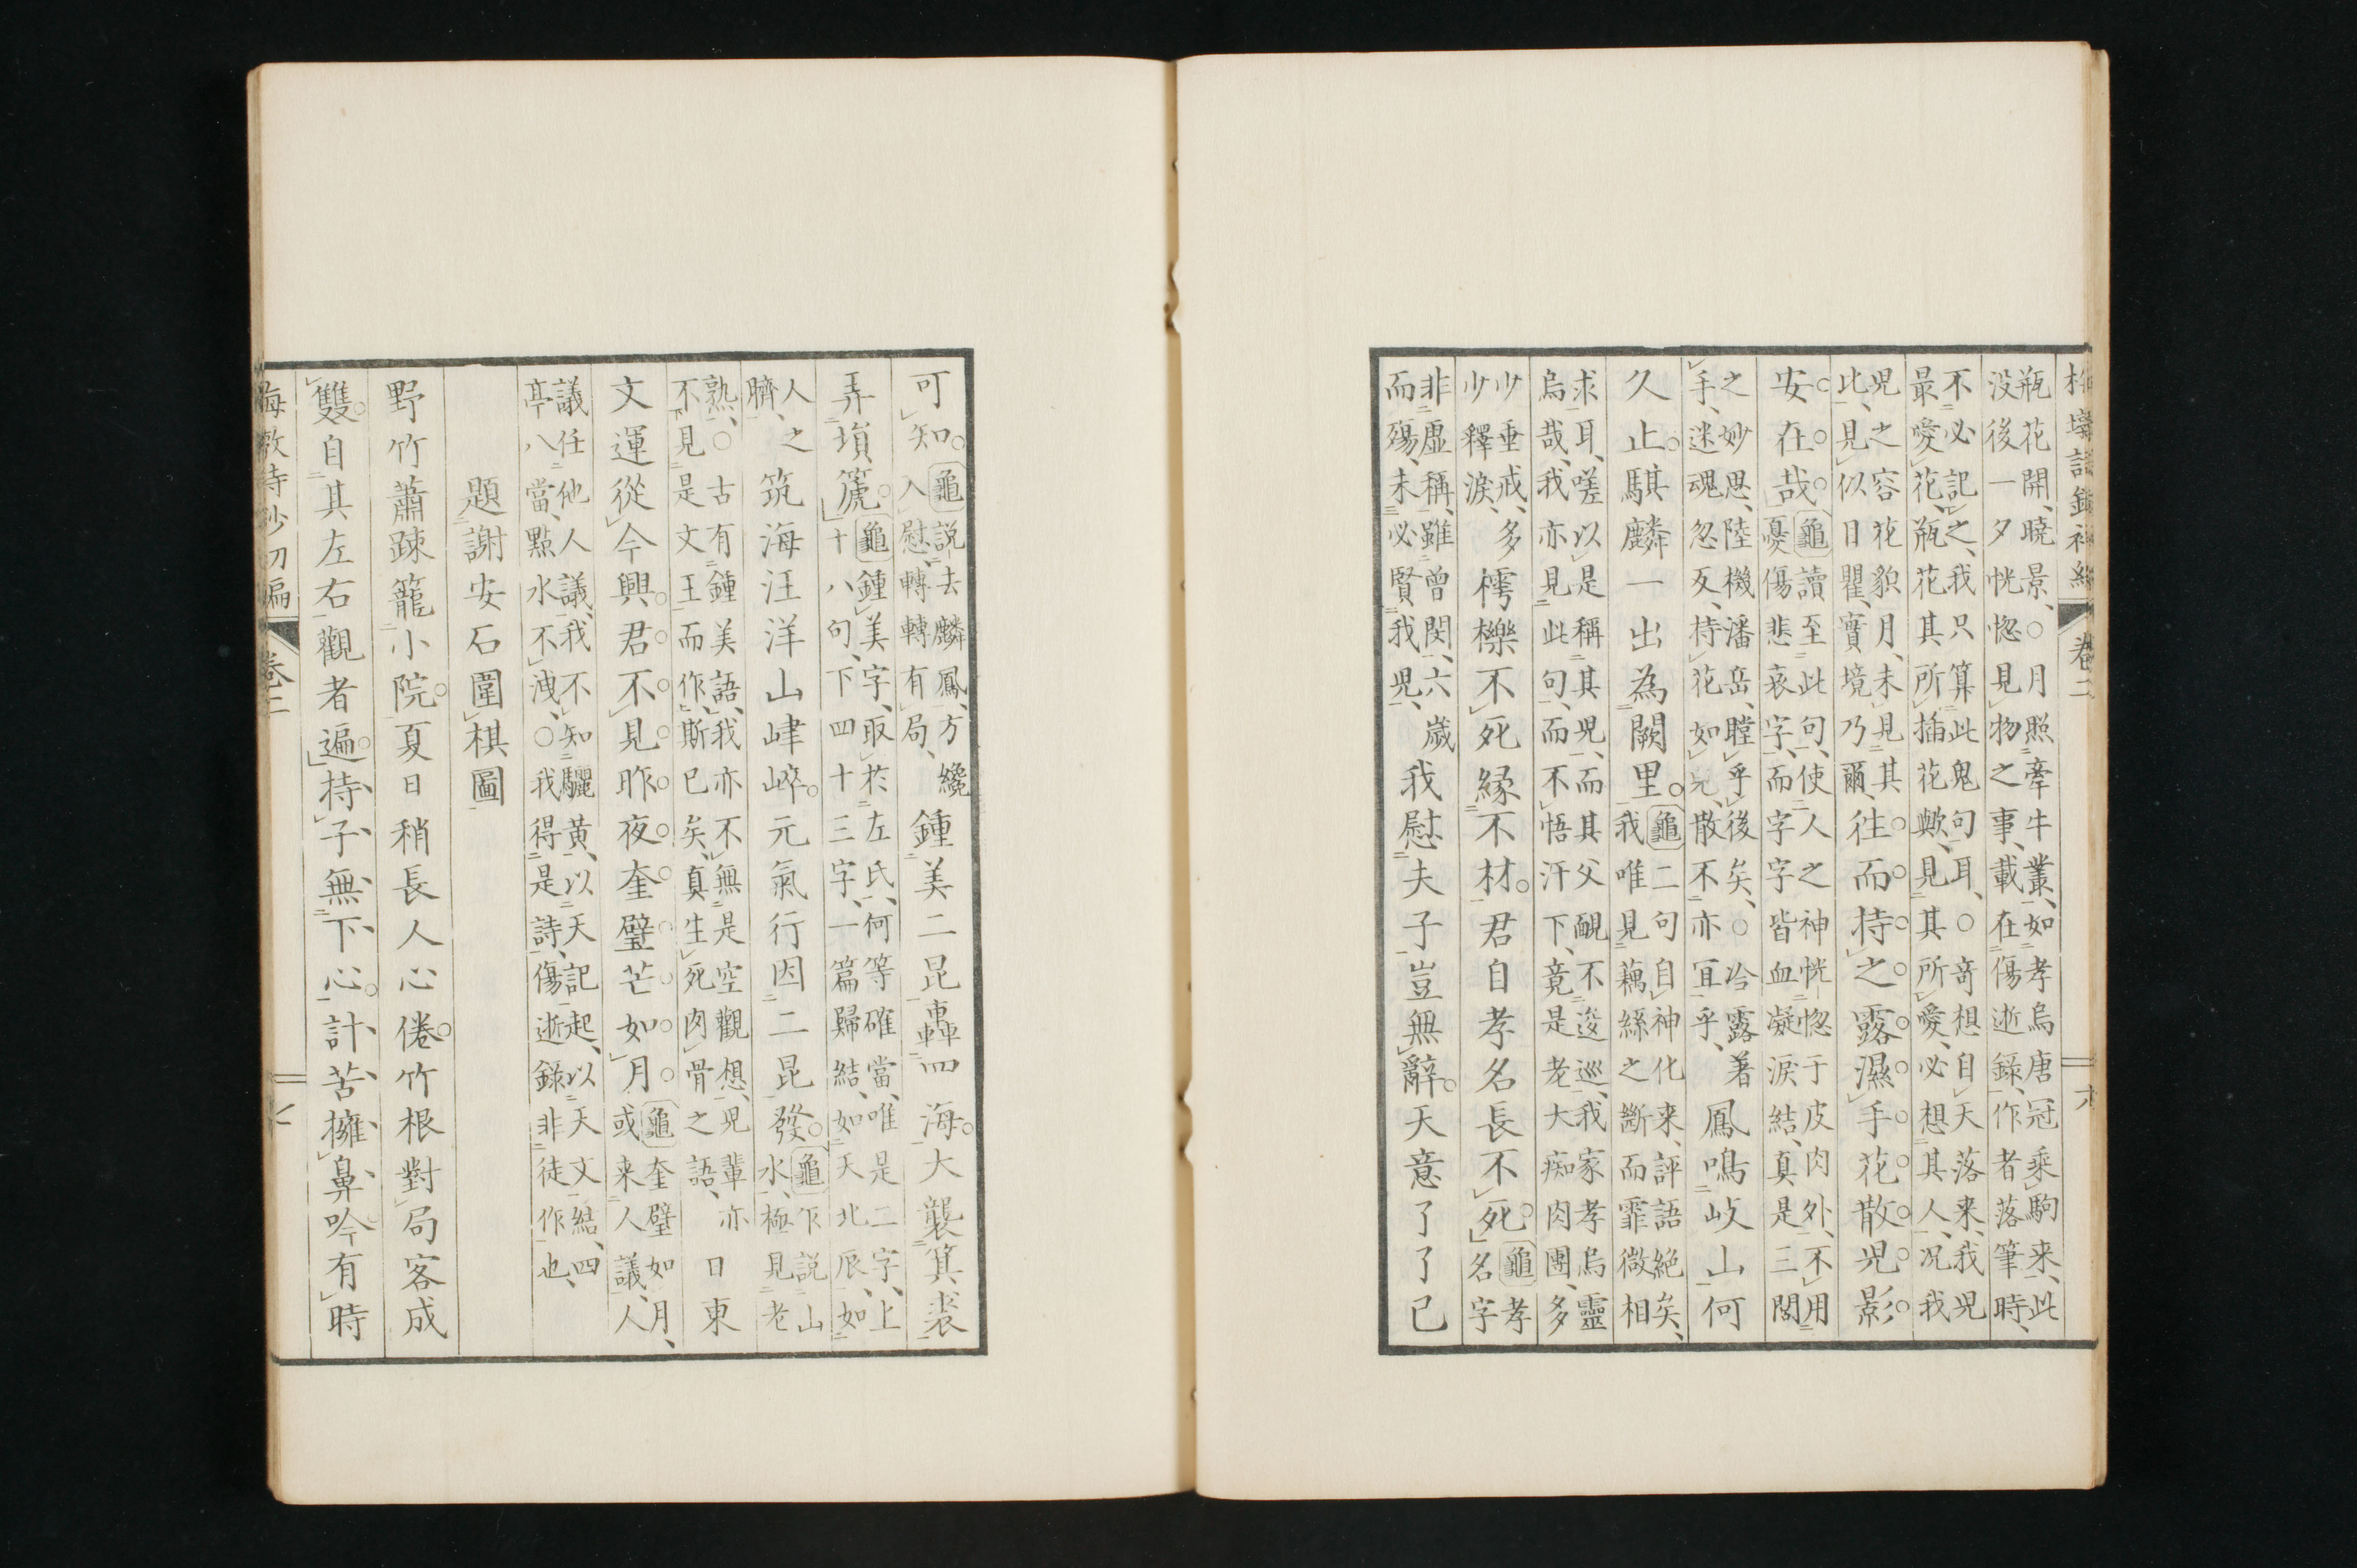 卷二 六
瓶花開、曉景、○月照牽牛叢、如孝烏唐冠乘駒来、此
没後一夕恍惚見物之事、載在傷逝録、作者落筆時、
不必記之、我只算此鬼句耳、○奇想自天落来、我児
最愛花、瓶花其所插花歟、見其所愛、必想其人、况我
児之容花貌月、未見其
此、見似目瞿、實境乃爾、
往而持之。露濕手花散児影
安在哉。
龜讀至此句、使人之神恍惚于皮肉外、不用
憂傷悲哀字、而字字皆血凝涙結、真是三閭
之妙思、陸機潘岳、瞠乎後矣、○冷露着
手、迷魂忽反、持花如児、散不亦宜乎、
鳳鳴岐山何
久止。騏麟一出為闕里。
龜二句自神化来、評語絶矣、
我唯見藕絲之斷而霏微相
求耳、嗟以是稱其児、而其父靦不逡巡、我家孝烏靈
烏哉、我亦見此句、而不悟汗下、竟是老大痴肉團、多
少垂戒、多
少釋涙、
樗櫟不死縁不材。君自孝名長不死。
龜孝
名字
非虚稱、雖曾閔、六歳
而殤、未必賢我児、
我慰夫子豈無辭。天意了了已
可知。
龜説去麟鳳、方纔
入慰、轉轉有局、
鍾美二昆轟四海。大襲箕裘
弄塤篪。
龜鍾美字、取於左氏、何等確當、唯是二字、上
十八句、下四十三字、一篇歸結、如天北辰、如
人之
臍、
筑海汪洋山嵂崒。元氣行因二昆發。
龜下説山
水、極見老
熟、○古有鍾美語、我亦不無是空觀想、児輩亦
不見是文王而作、斯已矣、真生死肉骨之語、
日東
文運從今興。君不見昨夜奎璧芒如月。
龜奎璧如月、
或来人議、人
議任他人議、我不知驪黄、以天記起、以天文結、四
亭八當、點水不洩、○我得是詩、傷逝録非徒作也、
題謝安石圍棋圖
野竹蕭踈籠小院。夏日稍長人心倦。竹根對局客成
雙。自其左右觀者遍。持子無下心計苦擁鼻吟有時
梅敦詩鈔初編 卷二 七